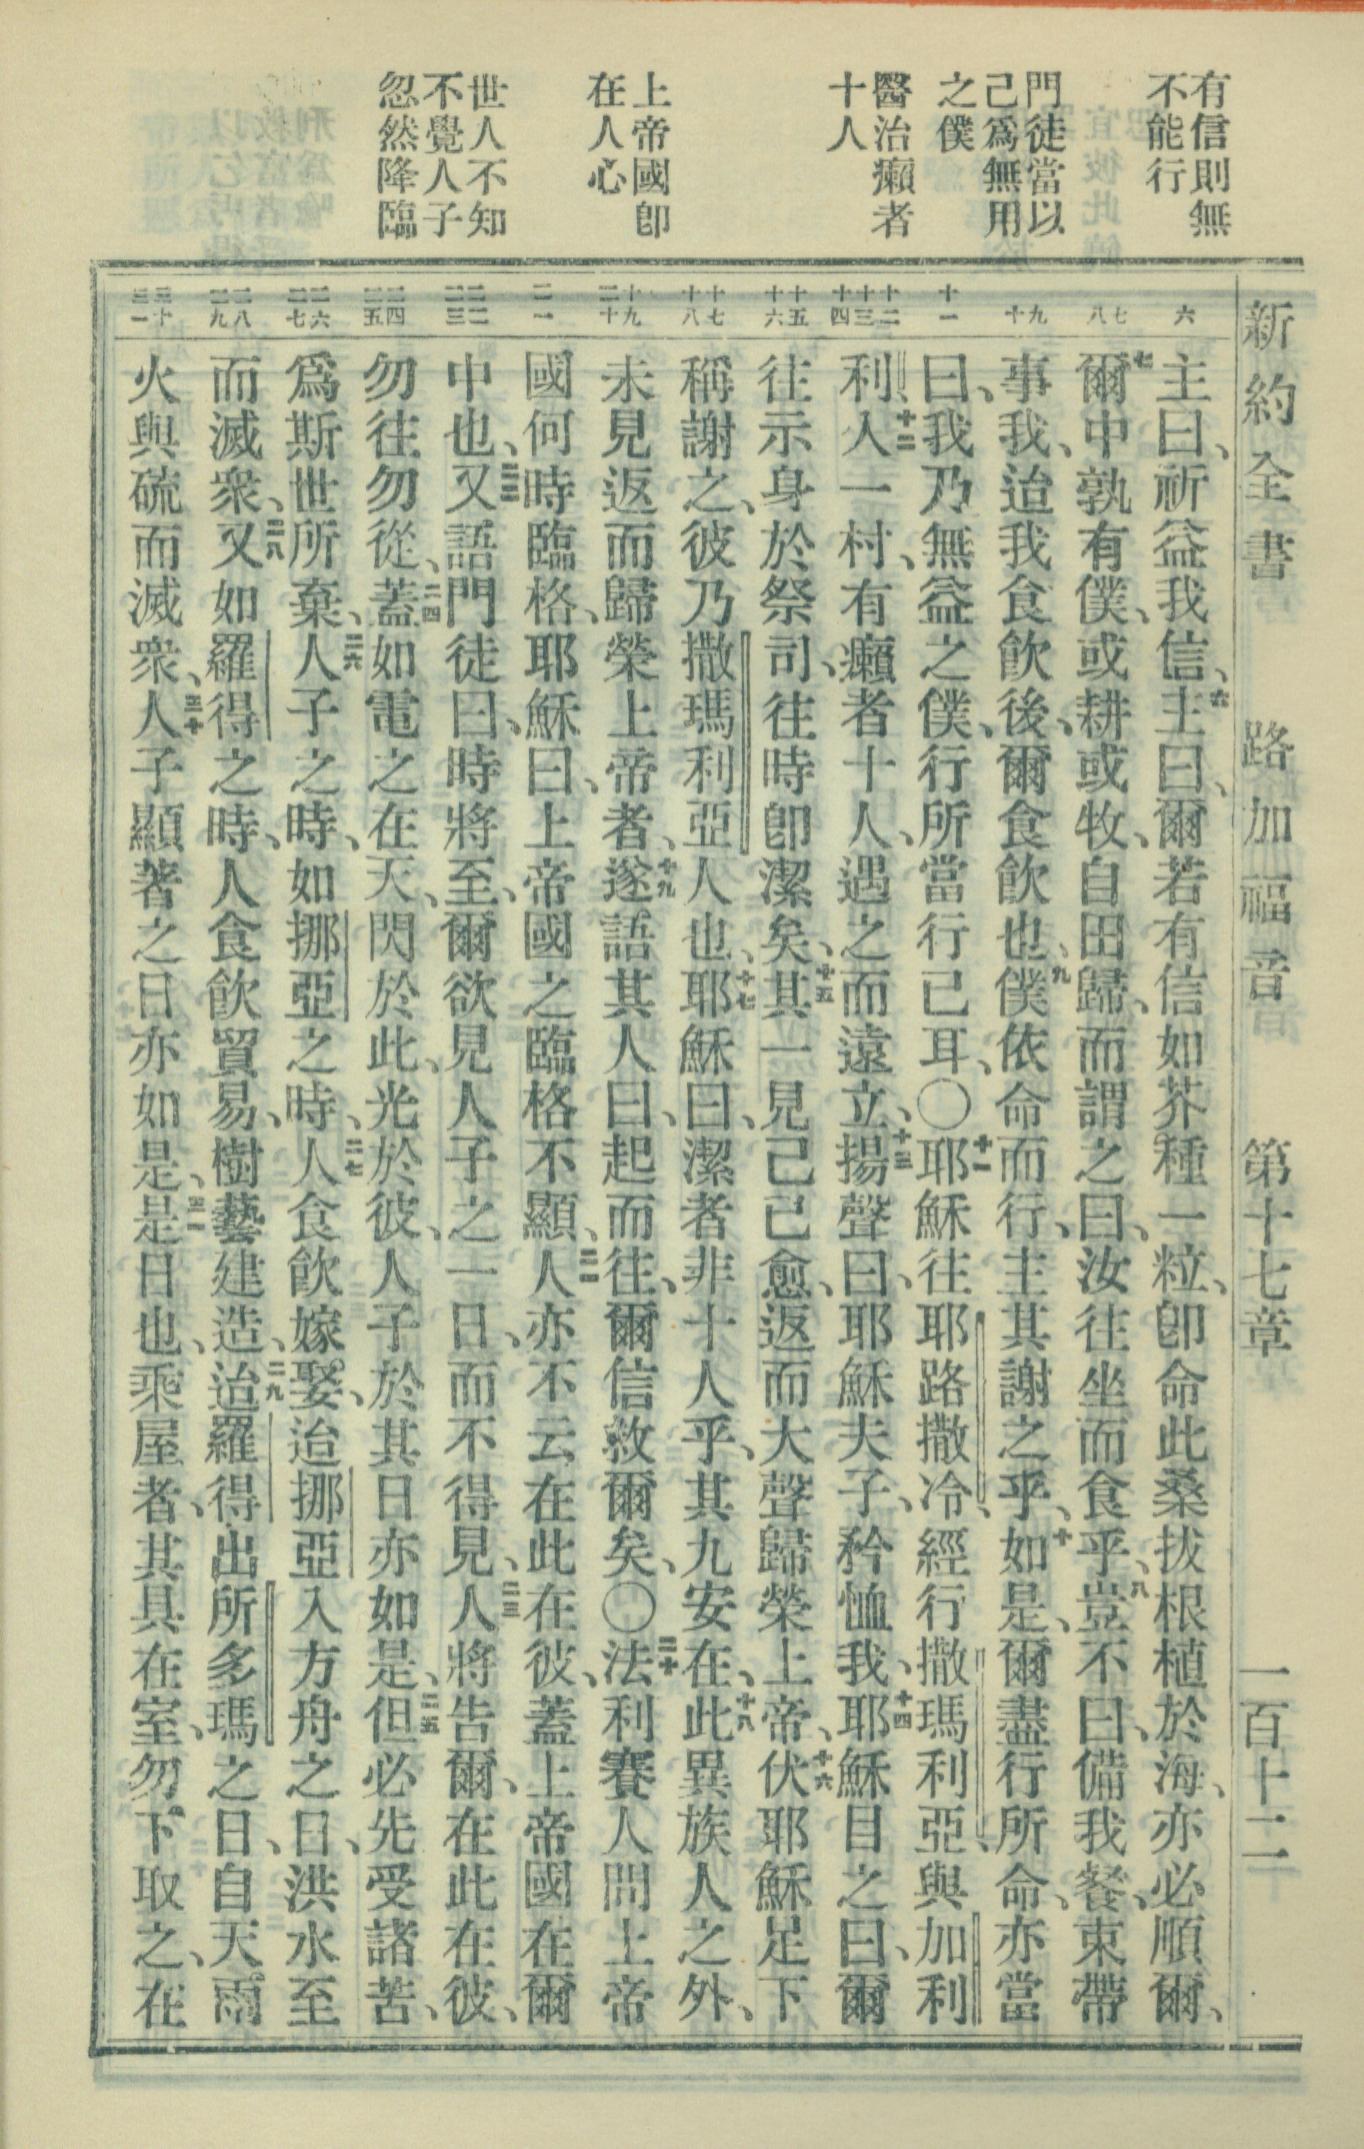 有信則無
不能行
門徒當以
己爲無用
之僕
醫治癩者
十人
上帝國卽
在人心
世人不知
不覺人子
忽然降臨
新約全書 路加福音 第十七章 一百十二
六
七
八
九
十
十一
十二
十三
十四
十五
十六
十七
十八
十九
二十
二一
二二
二三
二四
二五
二六
二七
二八
二九
三十
三一
主曰、祈益我信、六主曰、爾若有信如芥種一粒、卽命此桑拔根植於海、亦必順爾、
七爾中孰有僕、或耕或牧、自田歸、而謂之曰、汝往坐而食乎、八豈不曰、備我餐、束帶
事我、迨我食飮後、爾食飮也、九僕依命而行、主其謝之乎、十如是、爾盡行所命、亦當
曰、我乃無益之僕、行所當行已耳、〇十一耶穌往耶路撒冷、經行撒瑪利亞、與加利
利、十二入一村、有癩者十人、遇之而遠立、十三揚聲曰、耶穌夫子、矜恤我、十四耶穌目之曰、爾
往示身於祭司、往時卽潔矣、十五其一見己已愈、返而大聲歸榮上帝、十六伏耶穌足下
稱謝之、彼乃撒瑪利亞人也、十七耶穌曰、潔者非十人乎、其九安在、十八此異族人之外、
未見返而歸榮上帝者、十九遂語其人曰、起而往、爾信救爾矣、〇二十法利賽人問上帝
國何時臨格、耶穌曰、上帝國之臨格不顯、二一人亦不云在此在彼、蓋上帝國在爾
中也、二二又語門徒曰、時將至、爾欲見人子之一日、而不得見、二三人將告爾、在此在彼、
勿往勿從、二四蓋如電之在天、閃於此、光於彼、人子於其日亦如是、二五但必先受諸苦、
爲斯世所棄、二六人子之時、如挪亞之時、二七人食飮嫁娶、迨挪亞入方舟之日、洪水至
而滅衆、二八又如羅得之時、人食飮貿易、樹藝建造、二九迨羅得出所多瑪之日、自天雨
火與硫而滅衆、三十人子顯著之日亦如是、三一是日也、乘屋者、其具在室、勿下取之、在